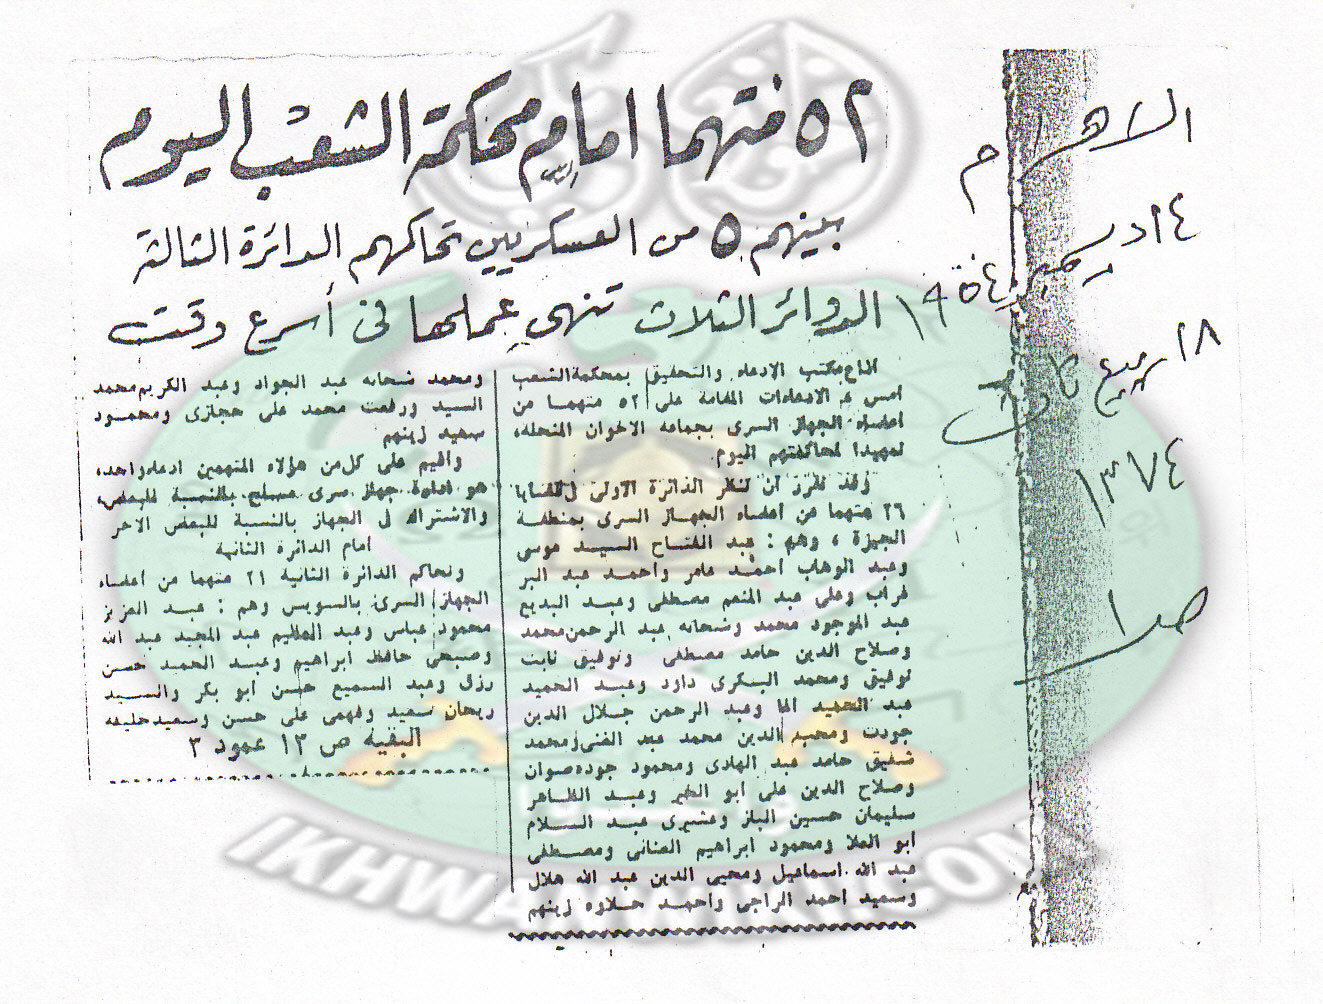 ٥٢ متهما امام محكمة الشعب اليوم
بينهم ٥ من العسكريين تحاكمهم الدائرة الثالثة
الدوائر الثلاث تنهى عملها فى أسرع وقت
الاهرام
١٤ ديسمبر ١٩٥٤
١٨ ربيع
١٣٧٤
ص ١
اذاع مكتب الادعاء والتحقيق بمحكمة الشعب
امس الادعاءات المقامة على ٥٢ متهما من
اعضاء الجهاز السرى بجماعة الاخوان المنحلة،
تمهيدا لمحاكمتهم اليوم
وقد تقرر ان تنظر الدائرة الاولى فى قضايا
٢٦ متهما من اعضاء الجهاز السرى بمنطقة
الجيزة ، وهم : عبد الفتاح السيد موسى
وعبد الوهاب احمد عامر واحمد عبد البر
غراب وعلى عبد المنعم مصطفى وعبد البديع
عبد الموجود محمد وشحاته عبد الرحمن محمد
وصلاح الدين حامد مصطفى وتوفيق ثابت
توفيق ومحمد البكرى داود وعبد الحميد
عبد الحميد وعبد الرحمن جلال الدين
جودت ومحب الدين محمد عبد الغنى ومحمد
شفيق حامد عبد الهادى ومحمود جوده صوان
وصلاح الدين على ابو الخير وعبد الظاهر
سليمان حسين الباز وعشرى عبد السلام
ابو العلا ومحمود ابراهيم العنانى ومصطفى
عبد الله اسماعيل ومحيى الدين عبد الله هلال
وسعيد احمد الراجى واحمد حلاوه زينهم
ومحمد شحاته عبد الجواد وعبد الكريم محمد
السيد ورفعت محمد على حجازى ومحمود
سعيد زينهم
واقيم على كل من هؤلاء المتهمين ادعاء واحد،
هو اقامة جهاز سرى مسلح بالنسبة للبعض،
والاشتراك فى الجهاز بالنسبة للبعض الاخر
امام الدائرة الثانية
وتحاكم الدائرة الثانية ٢١ متهما من اعضاء
الجهاز السرى بالسويس وهم : عبد العزيز
محمود عباس وعبد العظيم عبد المجيد عبد الله
وصبحى حافظ ابراهيم وعبد الحميد حسن
رزق وعبد السميع حسن ابو بكر والسيد
ريحان سعيد وفهمى على حسن وسعيد خليفه
البقيه ص ١٣ عمود ٣
IKHWANWIKI.COM